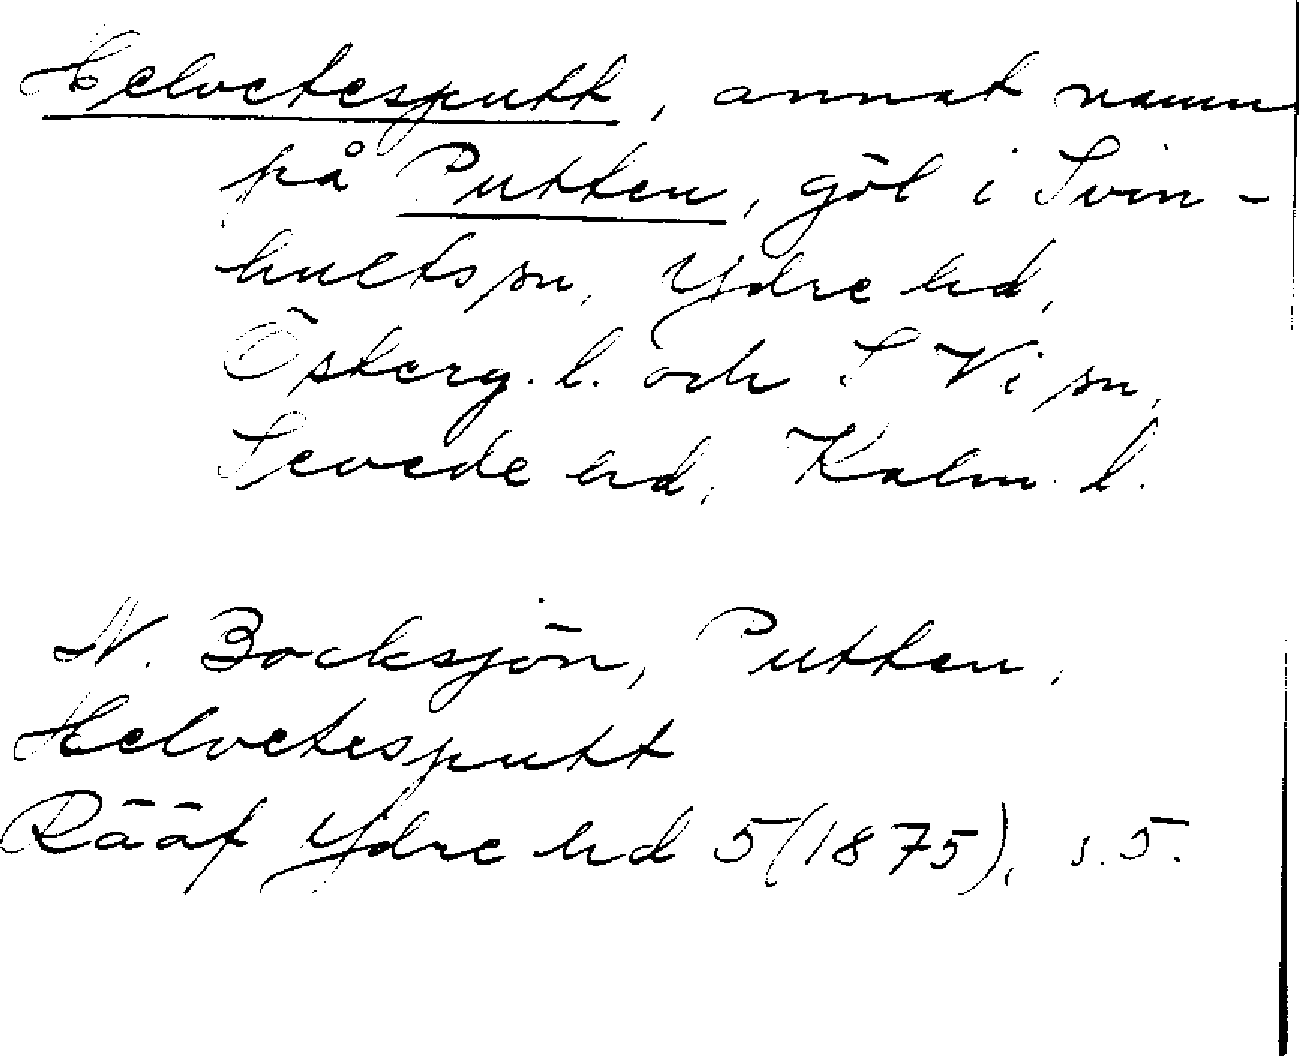 Helvetesputt, annat namn
på Putten, göl i Svin-
hults sn, Ydre hd,
Österg. l. och S Vi sn,
Sevede hd, Kalm. l.
N. Bocksjön, Putten,
Helvetesputt
Rääf Ydre hd 5 (1875), s. 5.